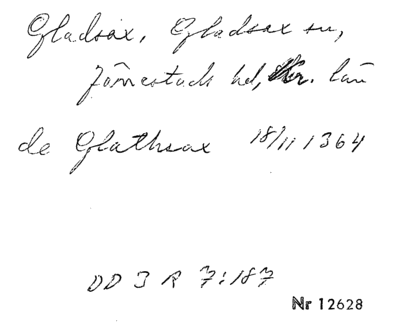 Gladsax, Gladsax sn,
Järrestads hd, Kr. län
de Glathsax 18/11 1364
DD 3 R 7:187
Nr 12628